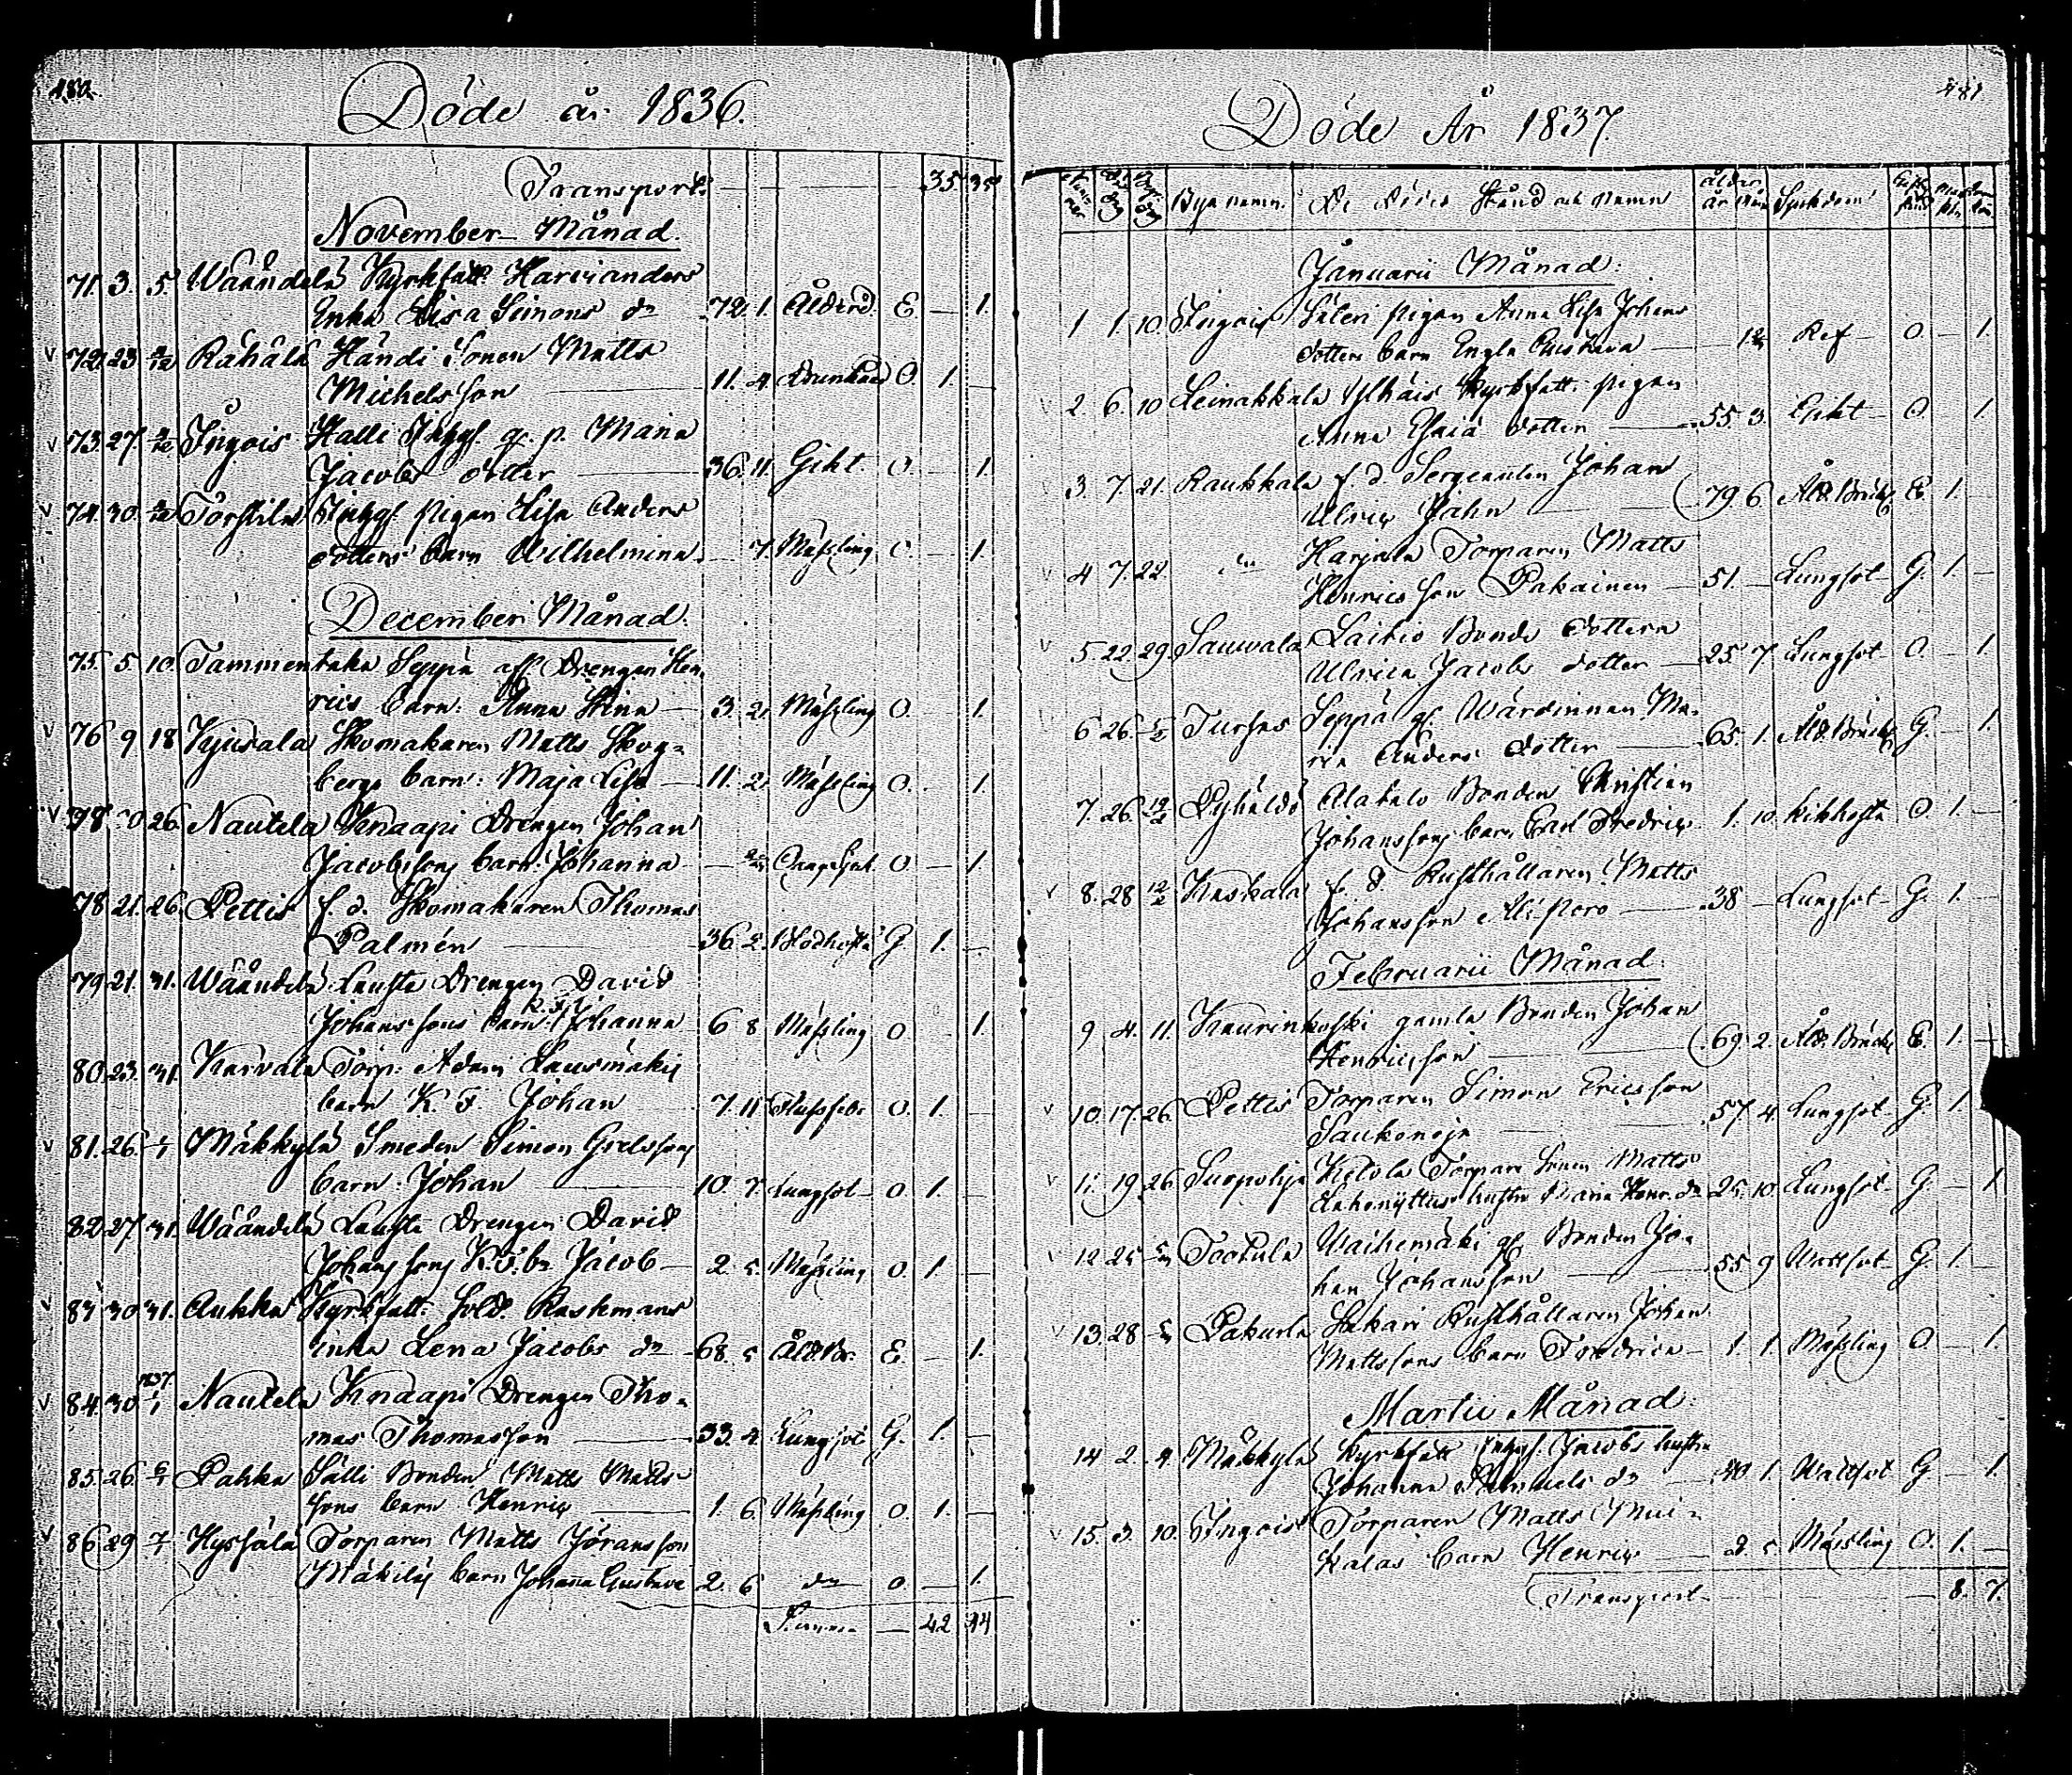 480.
Döde år 1836.
Transport 35 35
November Månad.
71. 3. 5. Wäändelä Kyrkfatt. Harvianders
Enka Lisa Simons dr 72. 1. Ålderd. E. — 1.
72. 23 4/12 Rähälä Händi Sonen Matts
Michelsson 11. 4. Drunknad O. 1. —
73. 27. 4/12 Ingois Halli Inhys. gl. p. Maria
Jacobs dotter 36. 11. Gikt. O. — 1.
74. 30. Torstila Inhys. pigan Lisa Anders
dotters barn Wilhelmina — 7. Mässling O. — 1.
December Månad.
75. 5 10. Tammentaka Seppä afl. Drengen Hen-
rics barn: Anna Stina 3. 2. Mässling O. — 1.
76 9 18 Skomakaren Matts Skog-
bergs barn: Maja Lisa 11. 2. Mässling O. 1.
26. Nautela Knaapi Drengen Johan
Jacobssons barn: Johanna O — 1.
78 21. 26. Pettis f. d. Skomakaren Thomas
Palmén 36. 2. Blodhosta G 1. —
79 21. 31. Wäändelä Lauste Drengen David
Johanssons barn: Johanna 6 8 Mässling O 1.
80. 23. 31. Karvala Torp. Adam Lausmäkis
barn K. F. Johan 7. 11 O. 1. —
81. 26. Mäkkylä Smeden Simon
barn: Johan 10. 7. Lungsot O. 1. —
82. 27. 31. Wäändelä Lauste Drengen David
Johanssons K. F. bn Jacob 2. 5. Mässling O. 1. —
83 30 31. Aukka Kyrkfatt. Sold. Raskmans
enka Lena Jacobs dr 68. 5 Åld. Br. E. — 1.
84. 30 1837. Nautela Knaapi Drengen Tho-
mas Thomasson 33. 4. Lungsot G. 1. —
85. 26 6/1 Pahka Sälli Bonden Matts Matts
sons barn Henric 1. 6. Mässling O. 1. —
86 29 Hyssälä Torparen Matts Jöransson
Mäkiläs barn Johanna Gustava 2. 6 do O. — 1.
Summa — 42 44
481
Döde År 1837
Byanamn. De Dödes Stånd och Namn Ålder. år Mån Sjukdom
Januarii Månad:
1 1. 10. Ingois Säteri pigan Anna Lisa Johans
dotters barn Engla Gustava Ref O. — 1.
2. 6. 10 Leinakkala Kyrkfatt. pigan
Anna Esaiä dotter 55. 3. Gikt O. 1.
3. 7. 21. Raukkala f. d. Sergeanten Johan
Ulric Jahn 79. 6. Åld. Bräckl. E. 1. —
4 7. 22. Harjula Torparen Matts
Henricsson Pakainen 51. — Lungsot G. 1. —
5. 22. 29. Sauwala Laitio Bonde dottern
Ulrica Jacobs dotter 25. 7. Lungsot O. — 1.
6 26. 5/2 Tursas Seppä gl. Wärdinnan Ma-
ria Anders dotter 65. 1. Åld. Bräckl. G. — 1.
7. 26. 12/2 Pyhäldö Alatalo Bonden Christian
Johanssons barn Carl Fredric 1. 10. Kikhosta O. 1. —
8. 28 12/2 Kaskala f. d. Rusthållaren Matts
Johansson 38 — Lungsot G. 1. —
Februarii Månad.
9 4. 11. Kaurinkoski gamla Bonden Johan
Henricsson 69. 2. Åld. Bräckl. E. 1. —
10. 17. 26. Pettis Torparen Simon Ericsson
Saukonoja 57. 4. Lungsot G. 1.
11. 19. 26 Ketola Torpare Sonen Matts
hustru Maria Henr. dr 25. 10. Lungsot G. — 1
12 25 5/3 Tootula Waihemäki gl. Bonden Jo-
han Johansson 55 9 Wattsot G. 1. —
13. 28 5/3 Pakurla Hakari Rusthållaren Johan
Mattssons barn Fredrica 1. 1. Mässling O. — 1.
Martii Månad.
14 2. 9. Mäkkylä Kyrkfatt Inhys. Jacobs hustru
Johanna Samuels dr 40 1. Wattsot G — 1.
15. 3. 10. Ingois Torparen Matts Mui-
kalas barn Henric 2. 5. Mässling O. 1. —
Transport — 8. 7.